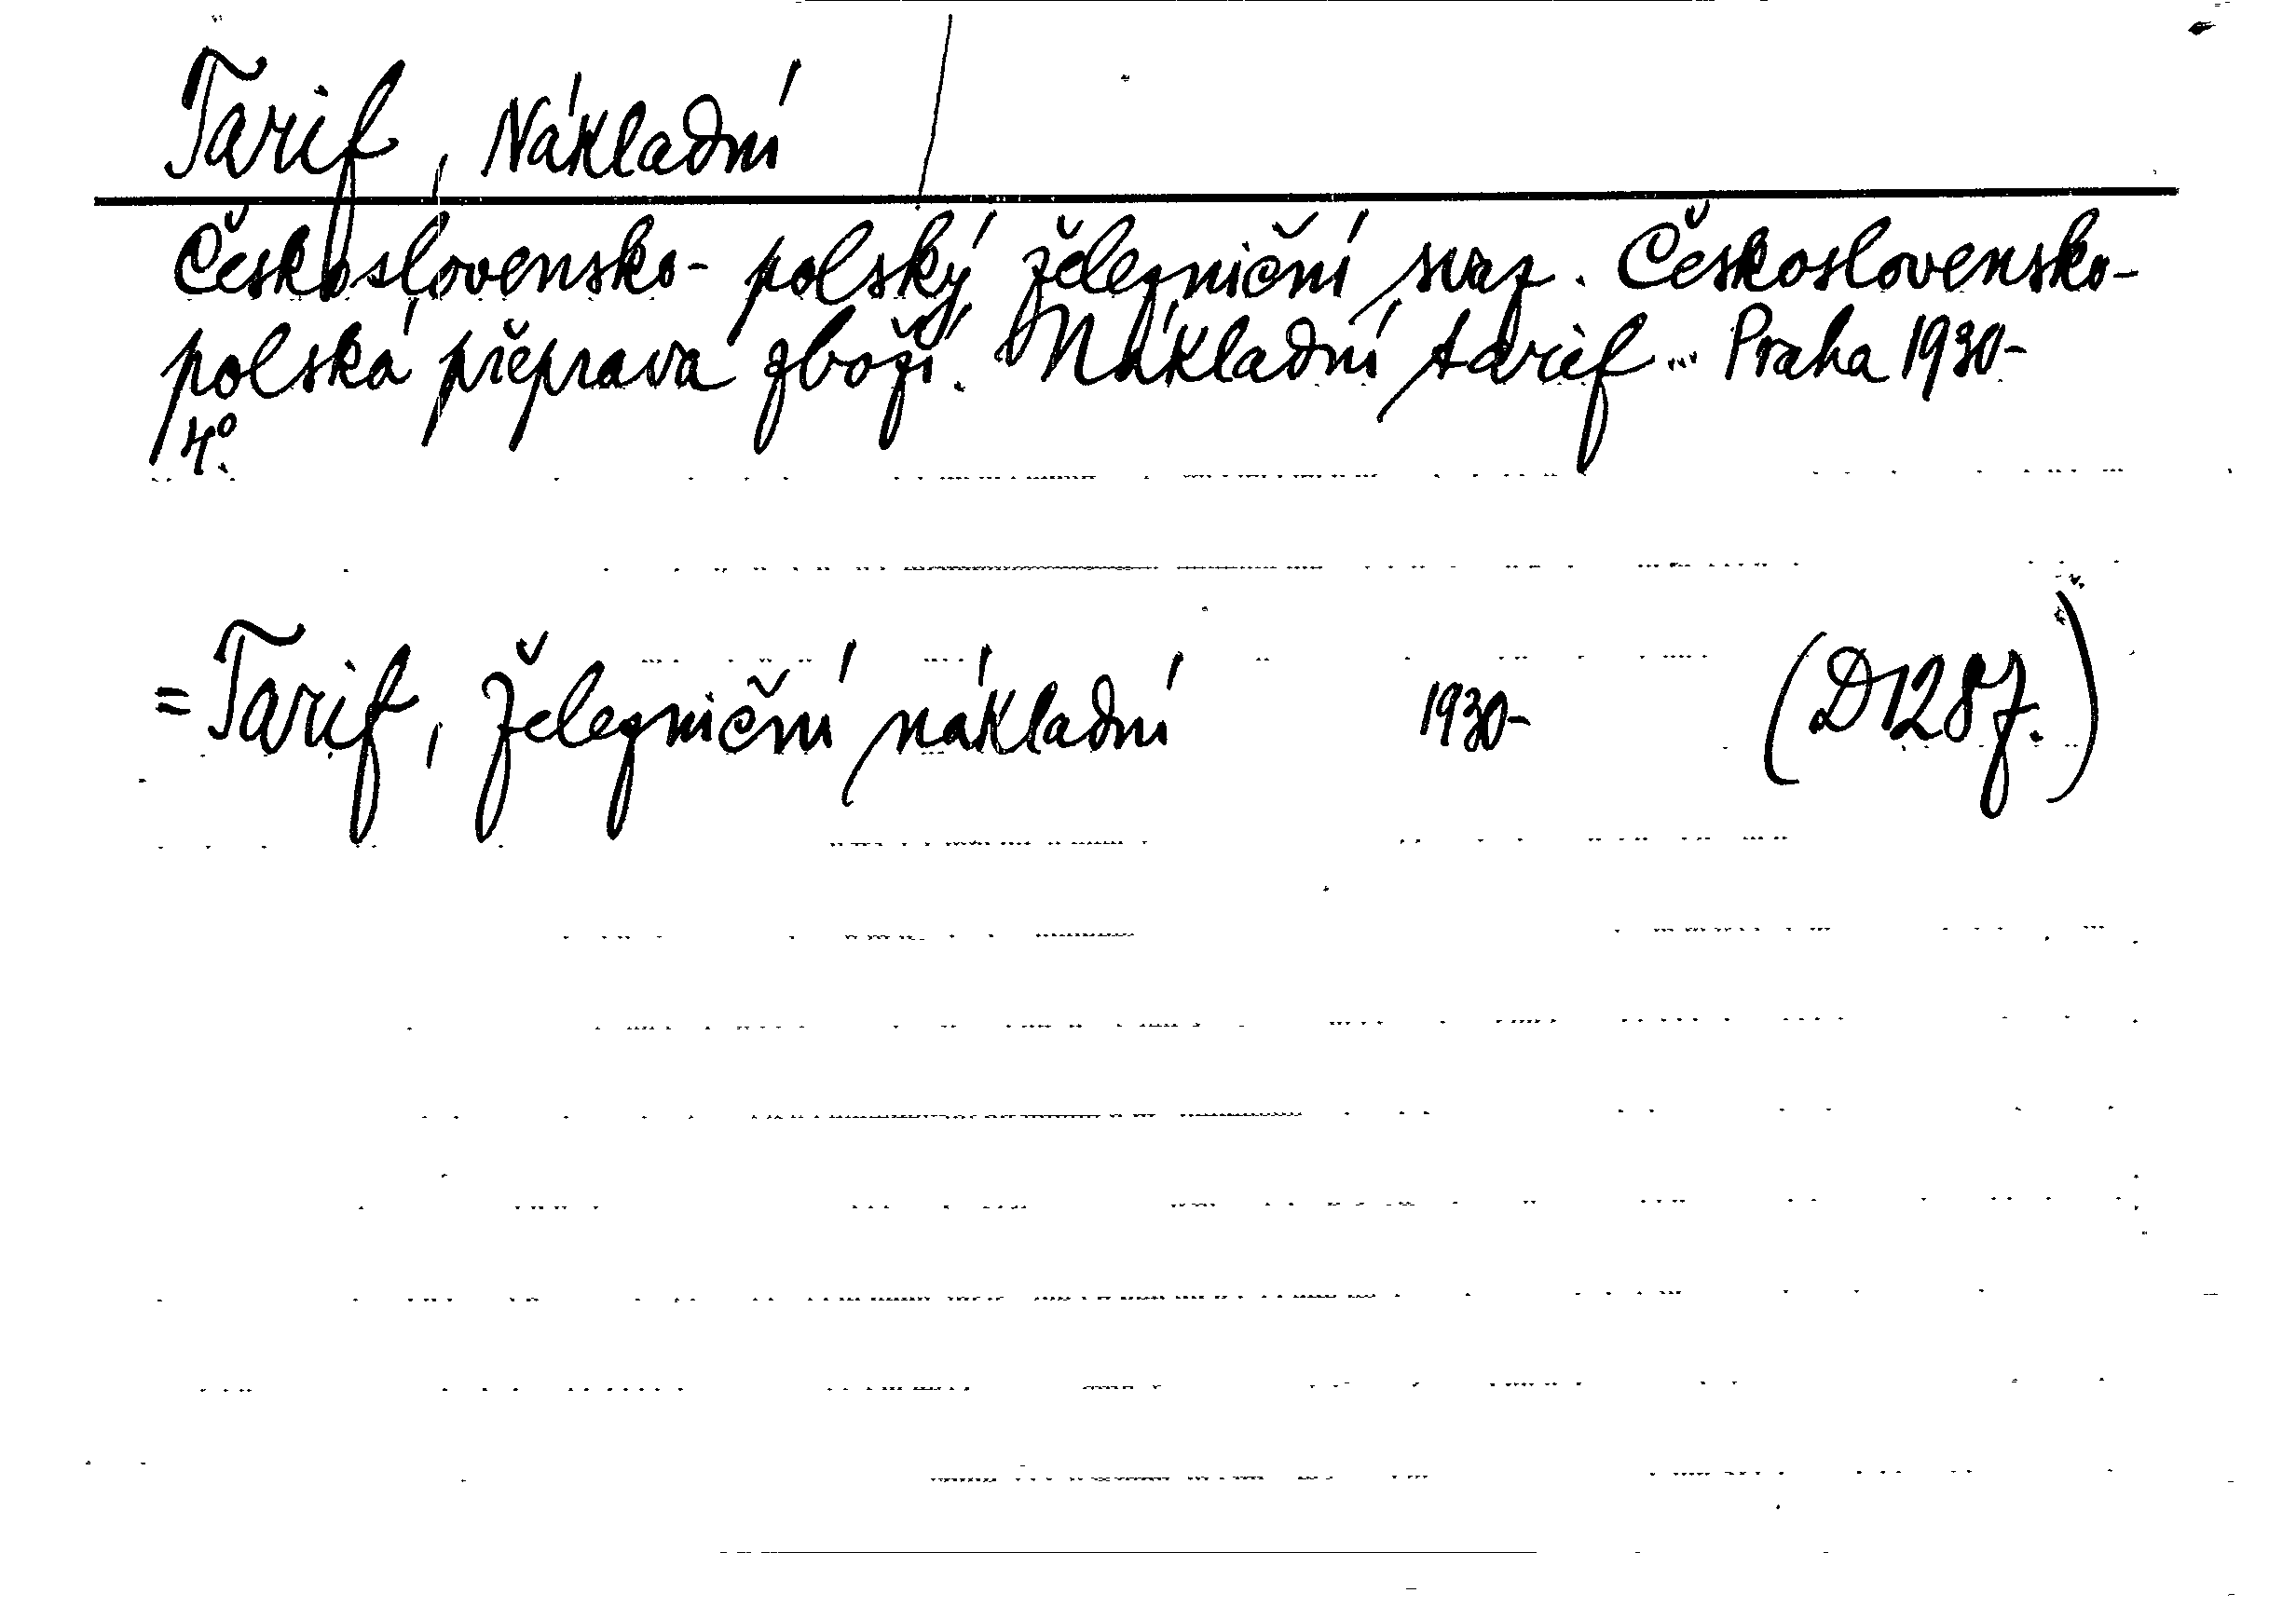 Tarif, Nákladní
Československo-polský železniční svaz. Československo-
polská přeprava zboží. Nákladní tarif ... Praha 1930-
4°.
= Tarif, železniční nákladní 1930- (D128j.)